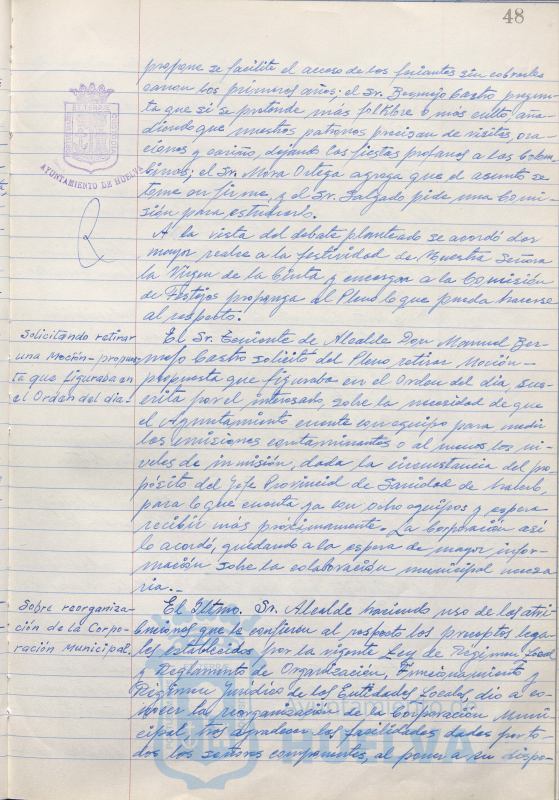 48
propone se facilite el acceso de los feriantes sin cobrarles
canon los primeros años; el Sr. Bermejo Castro pregun-
ta que si se pretende más folklore o más culto, aña-
diendo que nuestros patronos precisan de visitas, ora-
ciones y cariño, dejando las fiestas profanas a las Colom-
binas; el Sr. Mora Ortega agrega que el asunto se
tome en firme, y el Sr. Salgado pide una Comi-
sión para estudiarlo.
AYUNTAMIENTO DE HUELVA
A la vista del debate planteado se acordó dar
mayor realce a la festividad de Nuestra Señora
la Virgen de la Cinta y encargar a la Comisión
de Festejos proponga al Pleno lo que pueda hacerse
al respecto.
Solicitando retirar
una Moción-propues-
ta que figuraba en
el Orden del día.
El Sr. Teniente de Alcalde Don Manuel Ber-
mejo Castro solicitó del Pleno retirar Moción-
propuesta que figuraba en el Orden del día, sus-
crita por el interesado, sobre la necesidad de que
el Ayuntamiento cuente con equipo para medir
las emisiones contaminantes o al menos los ni-
veles de inmisión, dada la circunstancia del pro-
pósito del Jefe Provincial de Sanidad de hacerlo,
para lo que cuenta ya con ocho equipos y espera
recibir más próximamente. La Corporación así
lo acordó, quedando a la espera de mayor infor-
mación sobre la colaboración municipal necesa-
ria.-
Sobre reorganiza-
ción de la Corpo-
ración Municipal.
El Iltmo. Sr. Alcalde haciendo uso de las atri-
buciones que le confieren al respecto los preceptos lega-
les establecidos por la vigente Ley de Régimen Local
y Reglamento de Organización, Funcionamiento y
Régimen Jurídico de las Entidades Locales, dio a co-
nocer la reorganización de la Corporación Muni-
cipal, tras agradecer las facilidades dadas por to-
dos los señores componentes, al poner a su dispo-
Ayuntamiento de
HUELVA